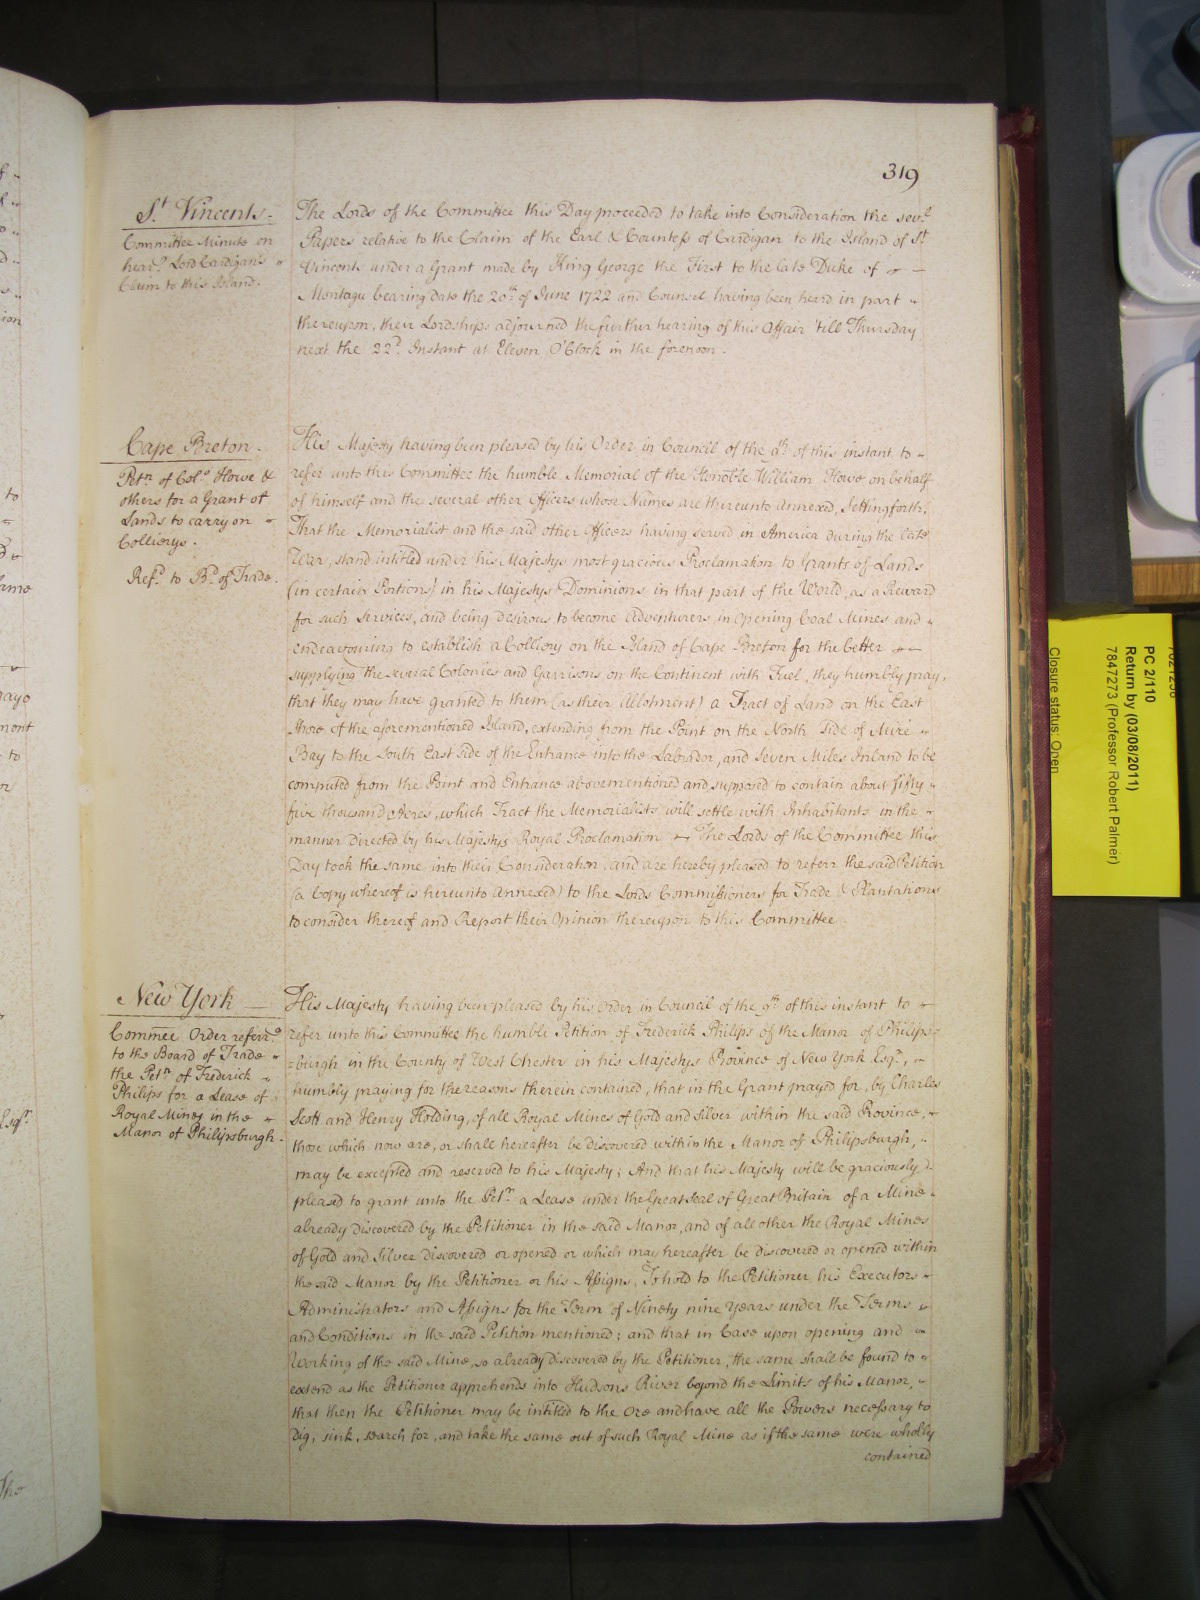 319
St. Vincents.
Committee Minute on
hear.g Lord Cardigan's
Claim to this Island.
The Lords of the Committee this Day proceeded to take into Consideration the sev.l
Papers relative to the Claim of the Earl & Countess of Cardigan to the Island of St.
Vincents under a Grant made by King George the First to the late Duke of
Montagu bearing date the 20th of June 1722 and Counsel having been heard in part
thereupon, their Lordships adjourned the further hearing of this Affair 'till Thursday
next the 22d Instant at Eleven O'Clock in the forenoon.
Cape Breton.
Petn of Colo Howe &
others for a Grant of
Lands to carry on
Collierys.
Refd to Bd of Trade.
His Majesty having been pleased by his Order in Council of the 9th of this instant to
refer unto this Committee the humble Memorial of the Honoble William Howe on behalf
of himself and the several other Officers whose Names are thereunto annexed, Setting forth,
That the Memorialist and the said other Officers having served in America during the late
War, stand intitled under his Majestys most gracious Proclamation to Grants of Lands
(in certain Portions) in his Majestys Dominions in that part of the World, as a Reward
for such Services, and being desirous to become Adventurers in opening Coal Mines and
endeavouring to establish a Colliery on the Island of Cape Breton for the better
supplying the several Colonies and Garrisons on the Continent with Fuel, they humbly pray,
that they may have granted to them (as their Allotment) a Tract of Land on the East
Shore of the aforementioned Island, extending from the Point on the North Side of Mire
Bay to the South East Side of the Entrance into the Labrador, and Seven Miles Inland to be
computed from the Point and Entrance abovementioned and supposed to contain about fifty
five thousand Acres, which Tract the Memorialists will settle with Inhabitants in the
manner directed by his Majestys Royal Proclamation The Lords of the Committee this
Day took the same into their Consideration, and are hereby pleased to referr the said Petition
(a Copy whereof is hereunto annexed) to the Lords Commissioners for Trade & Plantations
to consider thereof and Report their Opinion thereupon to this Committee
New York
Commee Order referrg
to the Board of Trade
the Petn of Frederick
Philips for a Lease of
Royal Mines in the
Manor of Philipsburgh.
His Majesty having been pleased by his Order in Council of the 9th of this instant to
refer unto this Committee the humble Petition of Frederick Philips of the Manor of Philips=
=burgh in the County of West Chester in his Majestys Province of New York Esqr,
humbly praying for the reasons therein contained, that in the Grant prayed for, by Charles
Scott and Henry Holding, of all Royal Mines of Gold and Silver within the said Province,
those which now are, or shall hereafter be discovered within the Manor of Philipsburgh,
may be excepted and reserved to his Majesty; And that his Majesty will be graciously
pleased to grant unto the Petr a Lease under the Great Seal of Great Britain of a Mine
already discovered by the Petitioner in the said Manor, and of all other the Royal Mines
of Gold and Silver discovered or opened or which may hereafter be discovered or opened within
the said Manor by the Petitioner or his Assigns, To hold to the Petitioner, his Executors
Administrators and Assigns for the Term of Ninety nine Years under the Terms
and Conditions in the said Petition mentioned; and that in Case upon opening and
Working of the said Mine, so already discovered by the Petitioner, the same shall be found to
extend as the Petitioner apprehends into Hudsons River beyond the Limits of his Manor,
that then the Petitioner may be intitled to the Ore and have all the Powers necessary to
Dig, sink, search for, and take the same out of such Royal Mine as if the same were wholly
contained
PC 2/110
Return by (03/08/2011)
7847273 (Professor Robert Palmer)
Closure status: Open